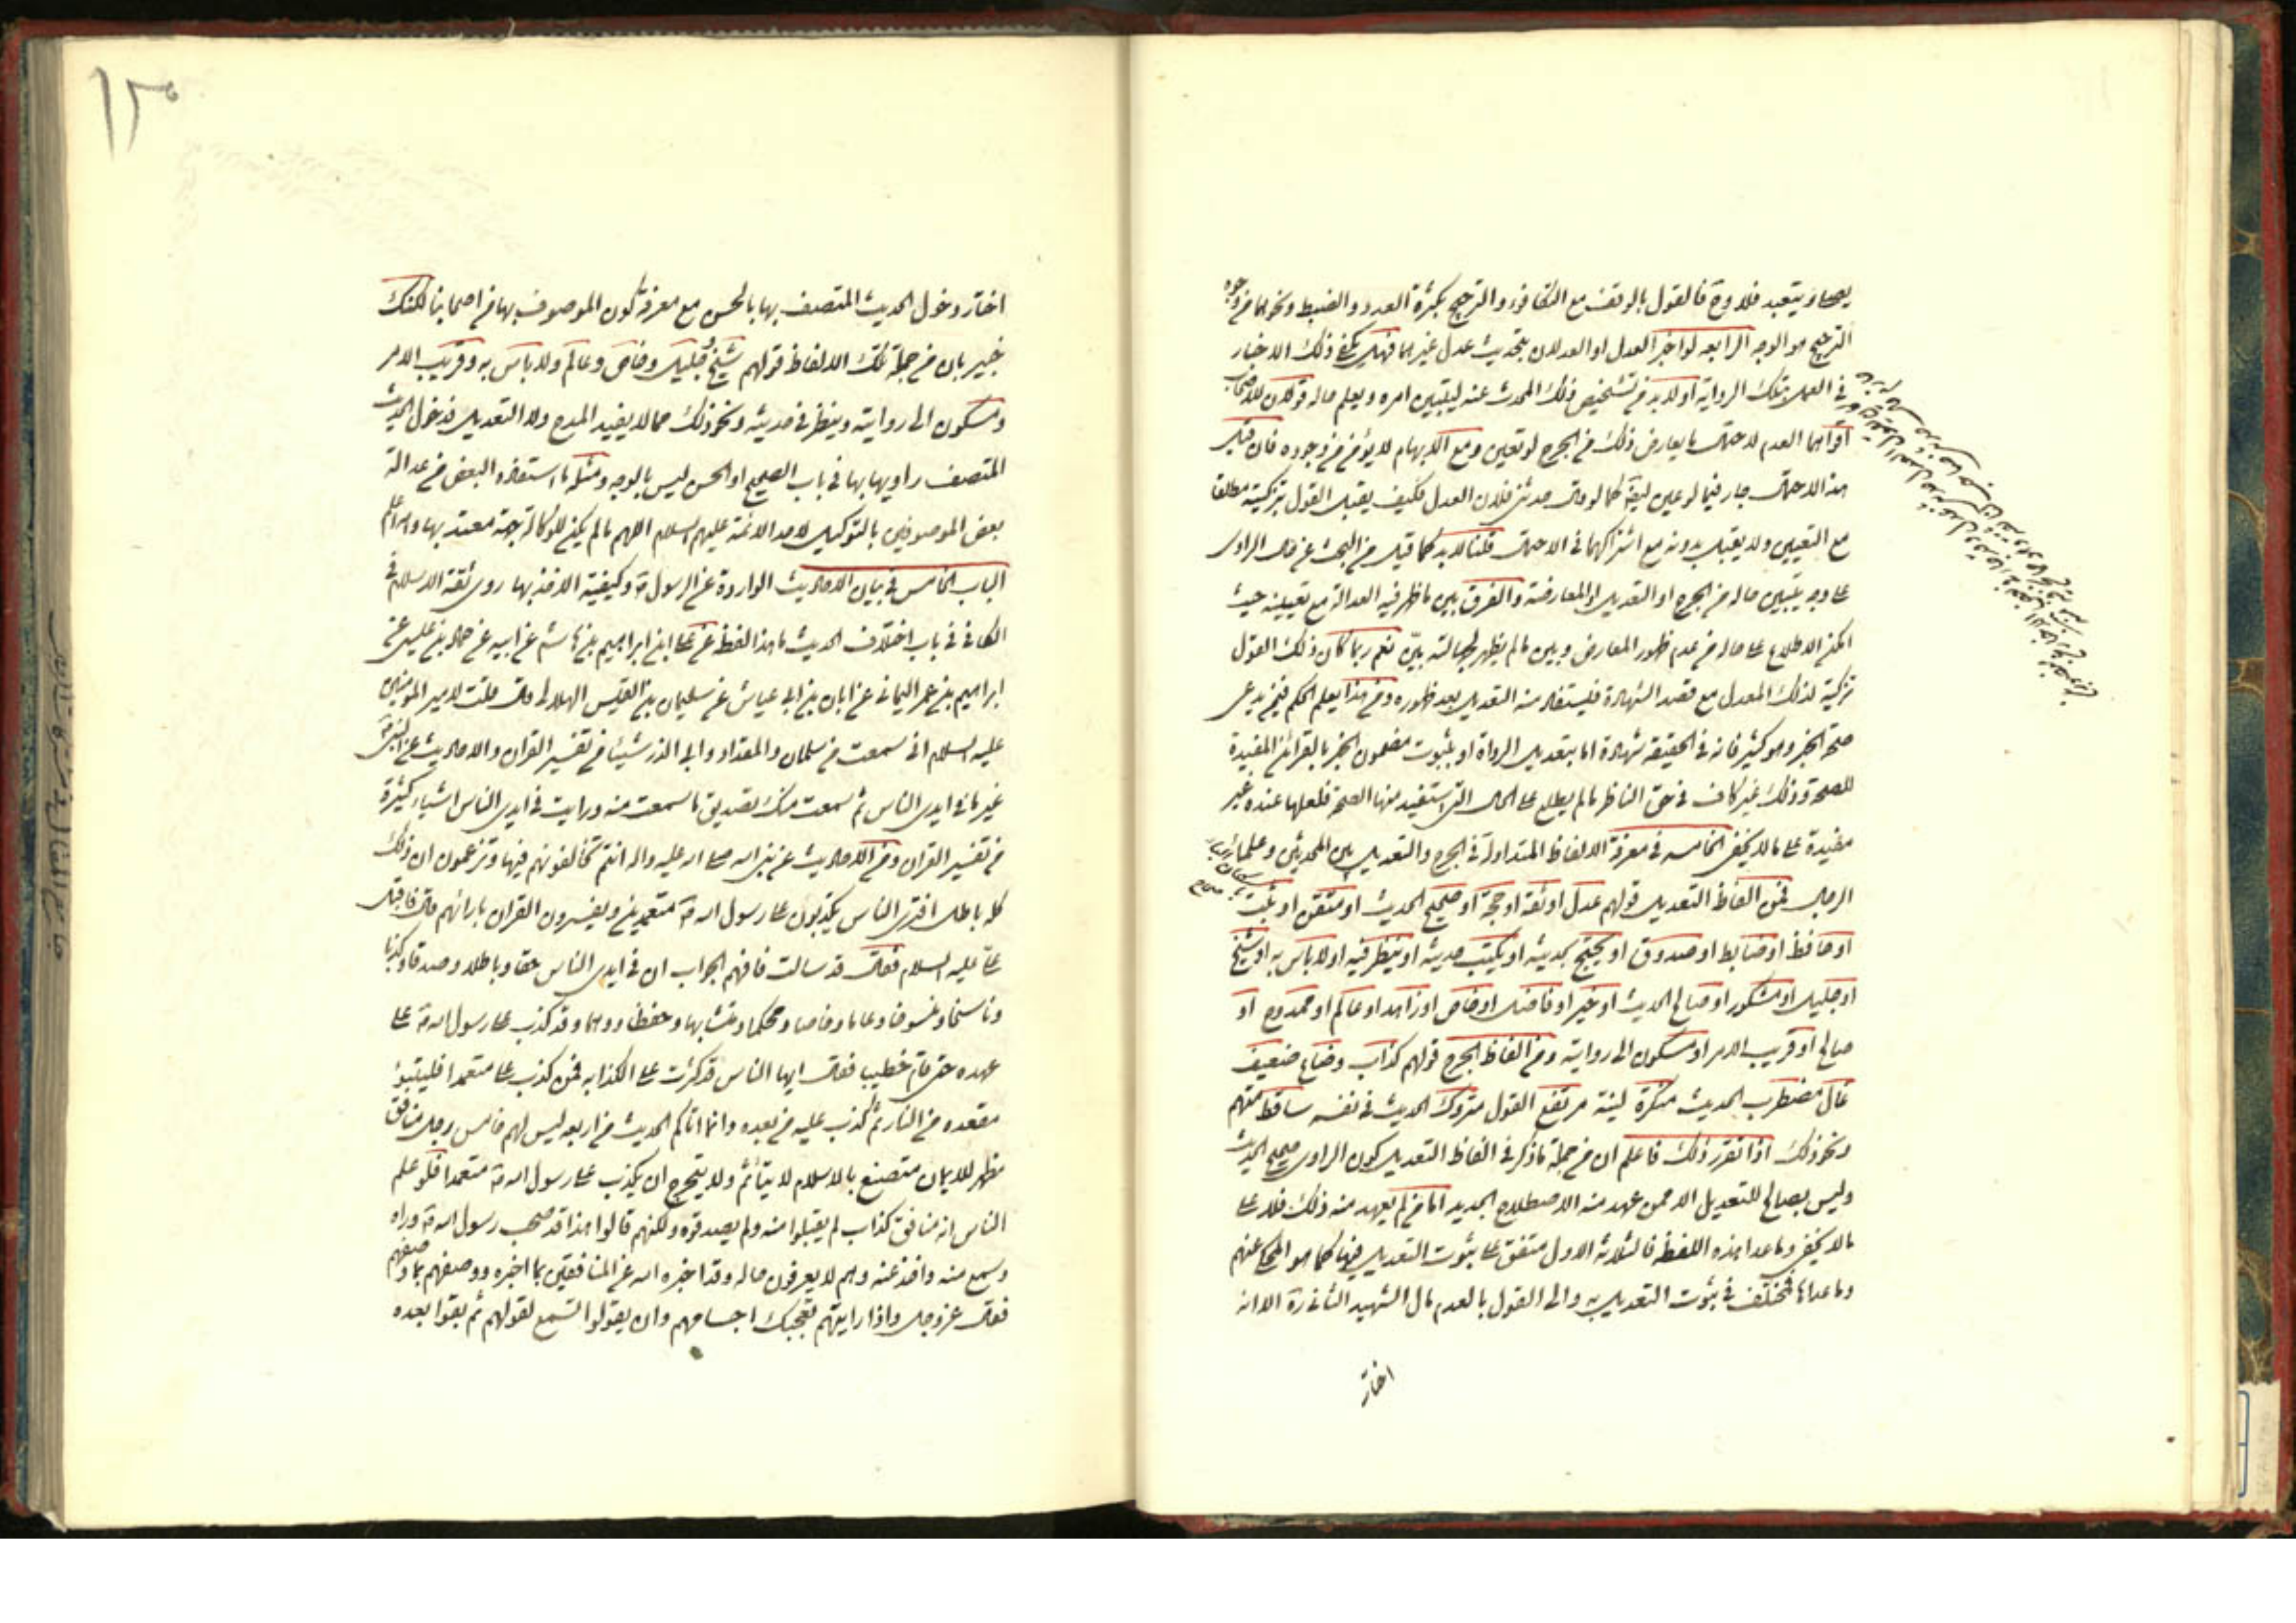 يصار ويتعبد فلا وجه فالقول بالوقف مع التكافؤ والترجيح بكثرة العدد والضبط ونحوهما من وجوه
الترجيح هو الوجه الرابعه لو اخبر العدل او العدلان بتحديث عدل غيرهما فهل يكفي ذلك الاخبار
في العمل بتلك الرواية او لابد من تشخيص ذلك المحدث عنه ليتبين امره ويعلم حاله قولان للاصحاب
اقواهما العدم لاحتمال ما يعارض ذلك من الجرح لو تعين ومع الابهام لا يؤمن من وجوده فان قيل
هذا الاحتمال جار فيما لو عين ايضا كما لو قال حدثني فلان العدل فكيف يقبل القول بتزكيته مطلقا
مع التعيين ولا يقبل بدونه مع اشتراكهما في الاحتمال قلنا لابد كما قيل من البحث عن حال الراوي
على وجه يتبين حاله من الجرح او التعديل او المعارضة والفرق بين ما ظهر فيه العدالة مع تعيينه حيث
امكن الاطلاع على حاله من عدم ظهور المعارض وبين ما لم يظهر لجهالته بيّن نعم ربما كان ذلك القول
تزكية لذلك المعدل مع قصد الشهادة فيستفاد منه التعديل بعد ظهوره ومن هذا يعلم الحكم فيمن يدعي
صحة الخبر وهو كثير فانه في الحقيقة شهادة اما بتعديل الرواة او بثبوت مضمون الخبر بالقرائن المفيدة
للصحة وذلك غير كاف في حق الناظر ما لم يطلع على الحال التي استفيد منها الصحة فلعلها عنده غير
مفيدة على ما لا يخفى الخامسه في معرفة الالفاظ المتداولة في الجرح والتعديل بين المحدثين وعلماء
الرجال فمن الفاظ التعديل قولهم عدل او ثقة او حجة او صحيح الحديث او متقن او ثبت
او حافظ او ضابط او صدوق او يحتج بحديثه او يكتب حديثه او ينظر فيه او لا باس به او شيخ
او جليل او مشكور او صالح الحديث او خير او فاضل او خاص او زاهد او عالم او ممدوح او
صالح او قريب الامر او مسكون الى روايته ومن الفاظ الجرح قولهم كذاب وضاع ضعيف
غال مضطرب الحديث منكره لينه مرتفع القول متروك الحديث في نفسه ساقط متهم
ونحو ذلك اذا تقرر ذلك فاعلم ان من جملة ما ذكر في الفاظ التعديل كون الراوي صحيح الحديث
وليس بصالح للتعديل الا ممن عهد منه الاصطلاح الجديد اما من لم يعهد منه ذلك فلا على
ما لا يخفى وما عدا هذه اللفظة فالثلاثة الاول متفق على ثبوت التعديل فيها كما هو المحكي عنهم
وما عداها مختلف في ثبوت التعديل به والى القول بالعدم مال الشهيد الثاني ره الا انه
اختار
١٢٠
اختار دخول الحديث المتصف بها بالحسن مع معرفة كون الموصوف بها من اصحابنا لكنك
خبير بان من جملة تلك الالفاظ قولهم شيخ وجليل وخاص وعالم ولا باس به وقريب الامر
ومسكون الى روايته وينظر في حديثه ونحو ذلك مما لا يفيد المدح ولا التعديل فدخول الحديث
المتصف راويها بها في باب الصحيح او الحسن ليس بالوجه ومثله ما استفاده البعض من عدالة
بعض الموصوفين بالتوكيل لاحد الائمة عليهم السلام اللهم ما لم يكن للوكالة جهة معتد بها والله اعلم
الباب الخامس في بيان الاحاديث الواردة عن الرسول ص وكيفية الاخذ بها روى ثقة الاسلام في
الكافي في باب اختلاف الحديث ما هذا لفظه عن علي ابن ابراهيم بن هاشم عن ابيه عن حماد بن عيسى عن
ابراهيم بن عمر اليماني عن ابان بن ابي عياش عن سليمان بن القيس الهلالي قال قلت لامير المؤمنين
عليه السلام اني سمعت من سلمان والمقداد وابي الذر شيئا من تفسير القران والاحاديث عن النبي ص
غير ما في ايدي الناس ثم سمعت منك تصديق ما سمعت منه ورايت في ايدي الناس اشياء كثيرة
من تفسير القران ومن الاحاديث عن نبي الله صلى الله عليه واله انتم تخالفونهم فيها وتزعمون ان ذلك
كله باطل افترى الناس يكذبون على رسول الله ص متعمدين ويفسرون القران بارائهم قال فاقبل
علي عليه السلام فقال قد سالت فافهم الجواب ان في ايدي الناس حقا وباطلا وصدقا وكذبا
وناسخا ومنسوخا وعاما وخاصا ومحكما ومتشابها وحفظا ووهما وقد كذب على رسول الله ص على
عهده حتى قام خطيبا فقال ايها الناس قد كثرت علي الكذابه فمن كذب علي متعمدا فليتبوؤ
مقعده من النار ثم كذب عليه من بعده وانما اتاكم الحديث من اربعه ليس لهم خامس رجل منافق
مظهر للايمان متصنع بالاسلام لا يتأثم ولا يتحرج ان يكذب على رسول الله ص متعمدا فلو علم
الناس انه منافق كذاب لم يقبلوا منه ولم يصدقوه ولكنهم قالوا هذا قد صحب رسول الله ص وراه
وسمع منه واخذ عنه وهم لا يعرفون حاله وقد اخبره الله عن المنافقين بما اخبره ووصفهم بما وصفهم
فقال عز وجل واذا رايتهم تعجبك اجسامهم وان يقولوا تسمع لقولهم ثم بقوا بعده